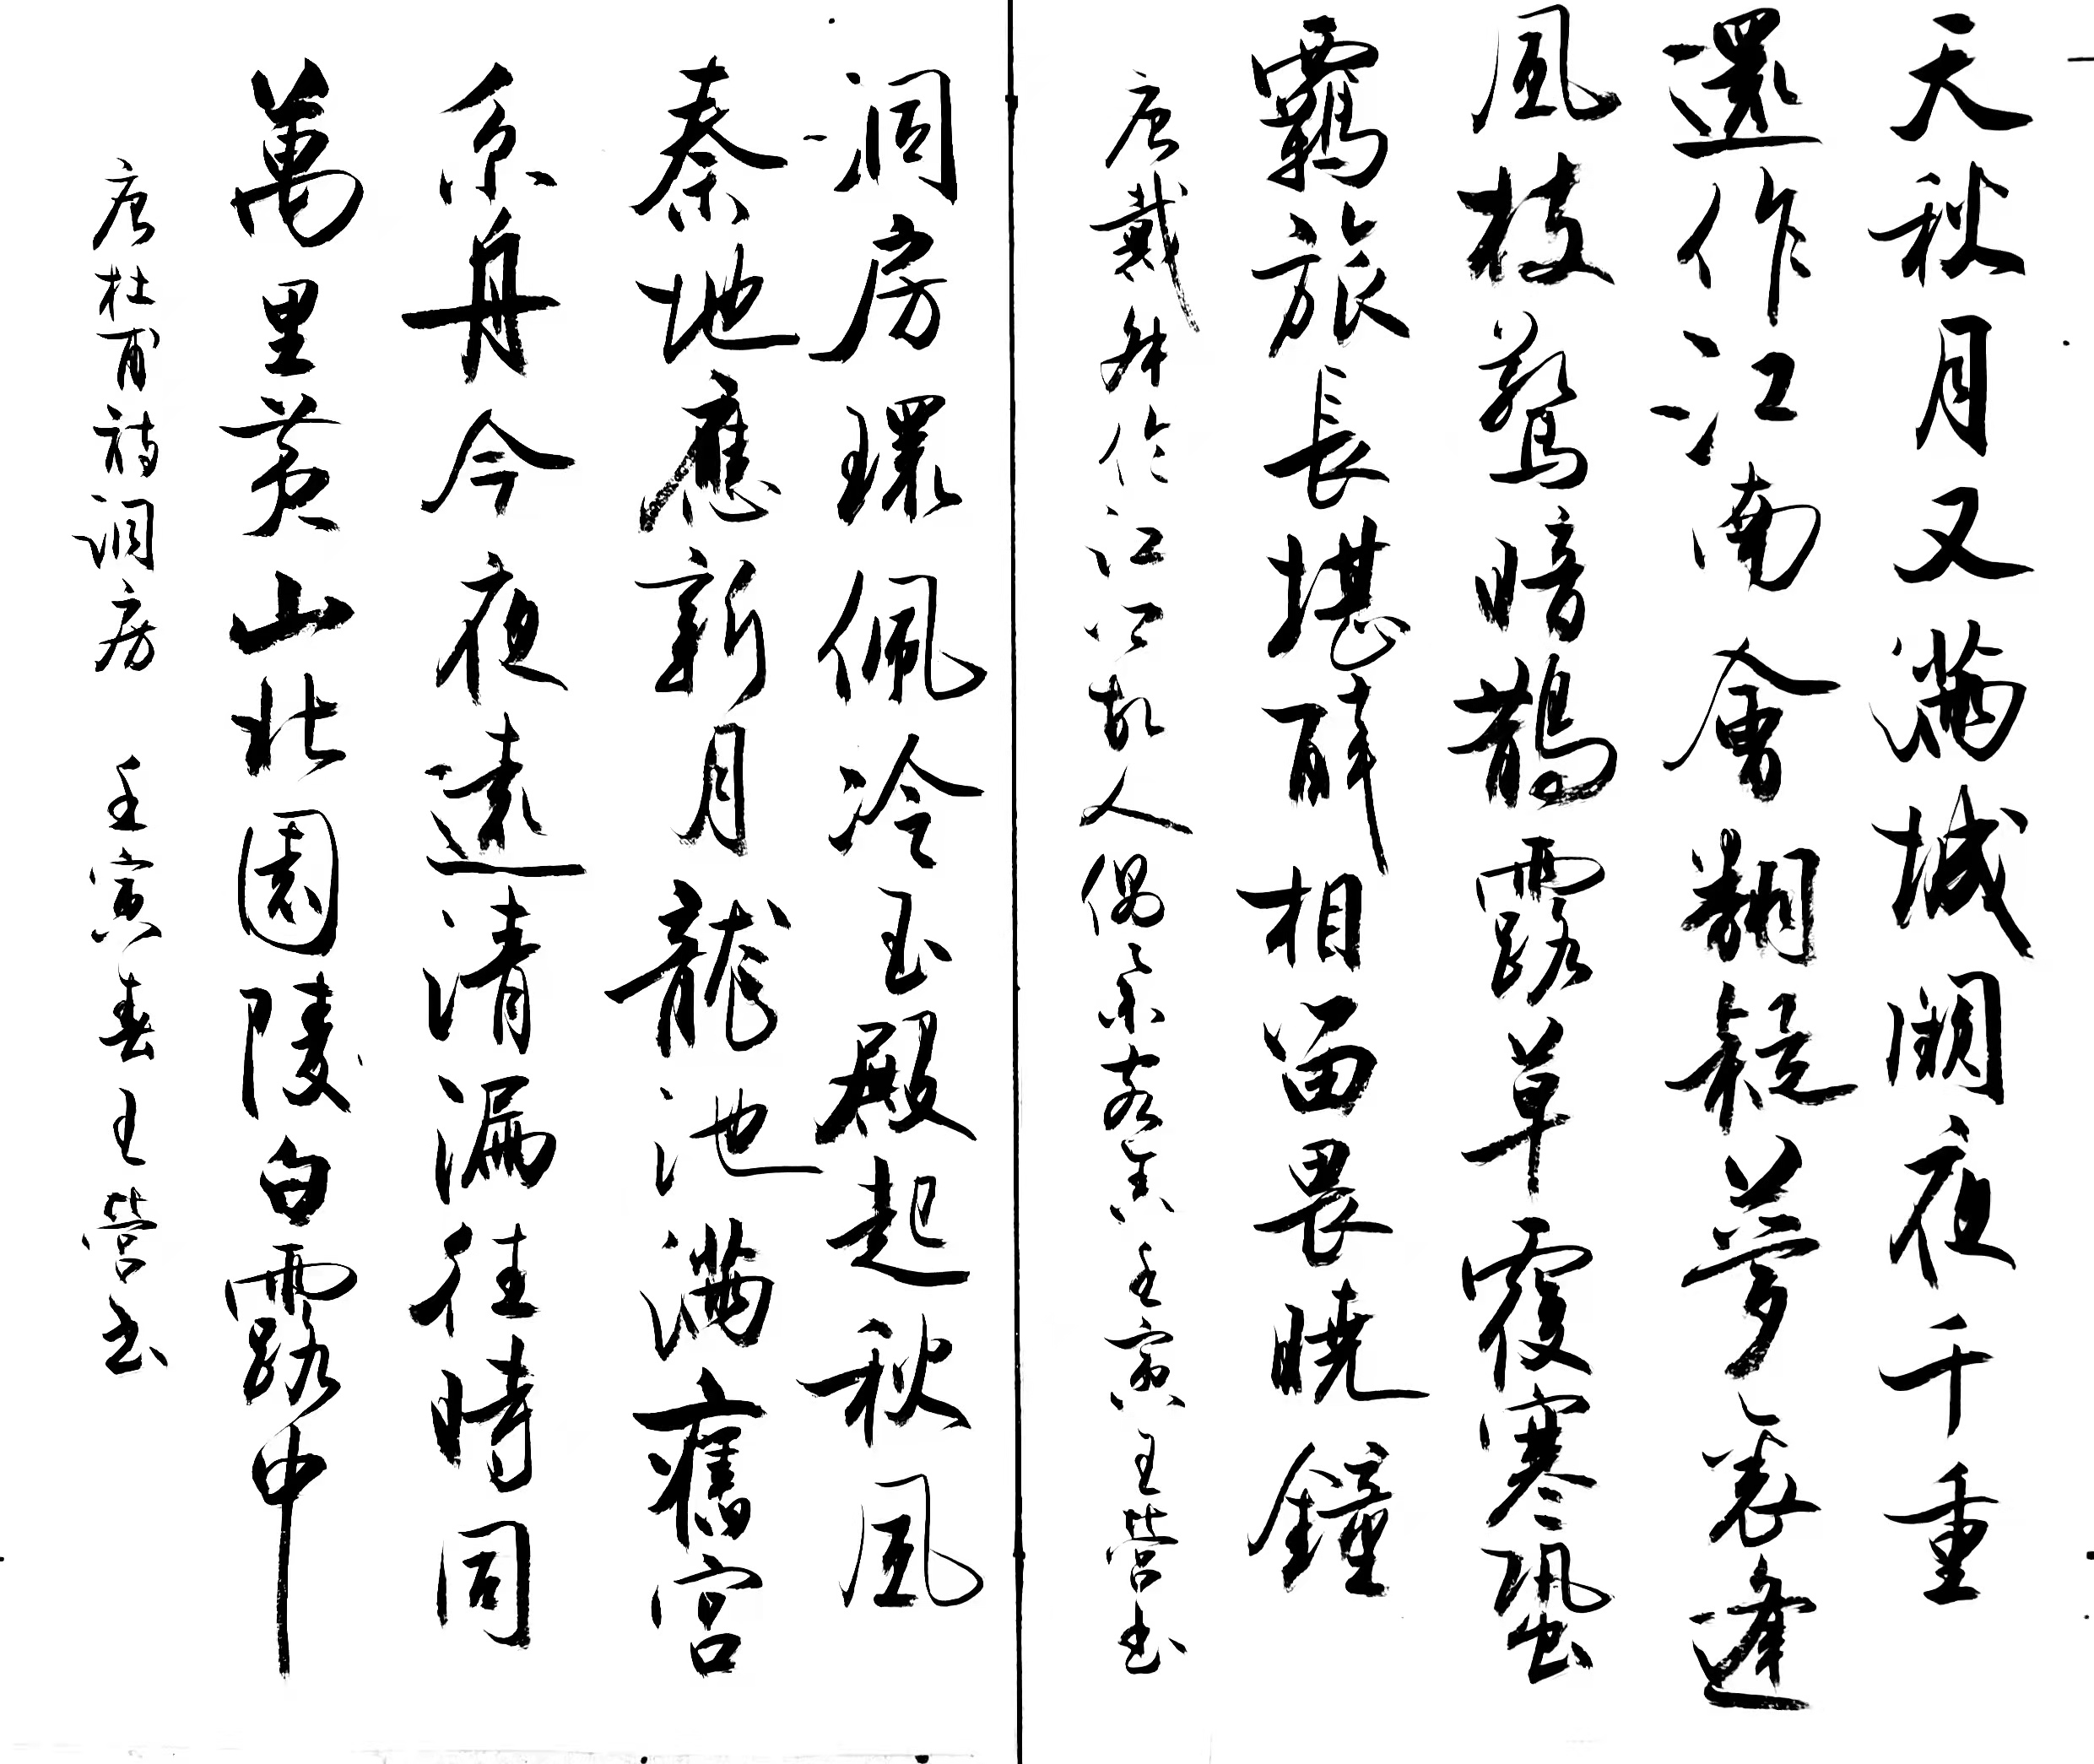 天秋月又滿城闕夜千重
還作江南會翻疑夢裏逢
風枝驚暗鵲露草覆寒蛩
羈旅長堪醉相留畏曉鐘
唐戴叔伦江乡故人偶集客舍 壬寅王营书
洞房環佩冷玉殿起秋風
秦地應新月龍池滿舊宮
系舟今夜遠清漏往時同
萬里黃山北園陵白露中
唐杜甫诗洞房 壬寅春王营书